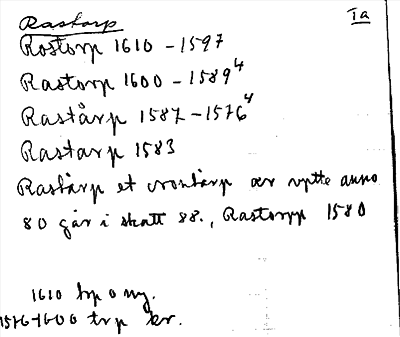 Rastorp Ia
Rostorp 1610 - 1597
Rastorp 1600 - 1589⁴
Rastårp 1587 - 1576⁴
Rastarp 1583
Rastårp et crontårp ær vptte anno
80 går i skatt 88., Rastorpp 1580
1610 trp o ny.
1576-1600 trp kr.